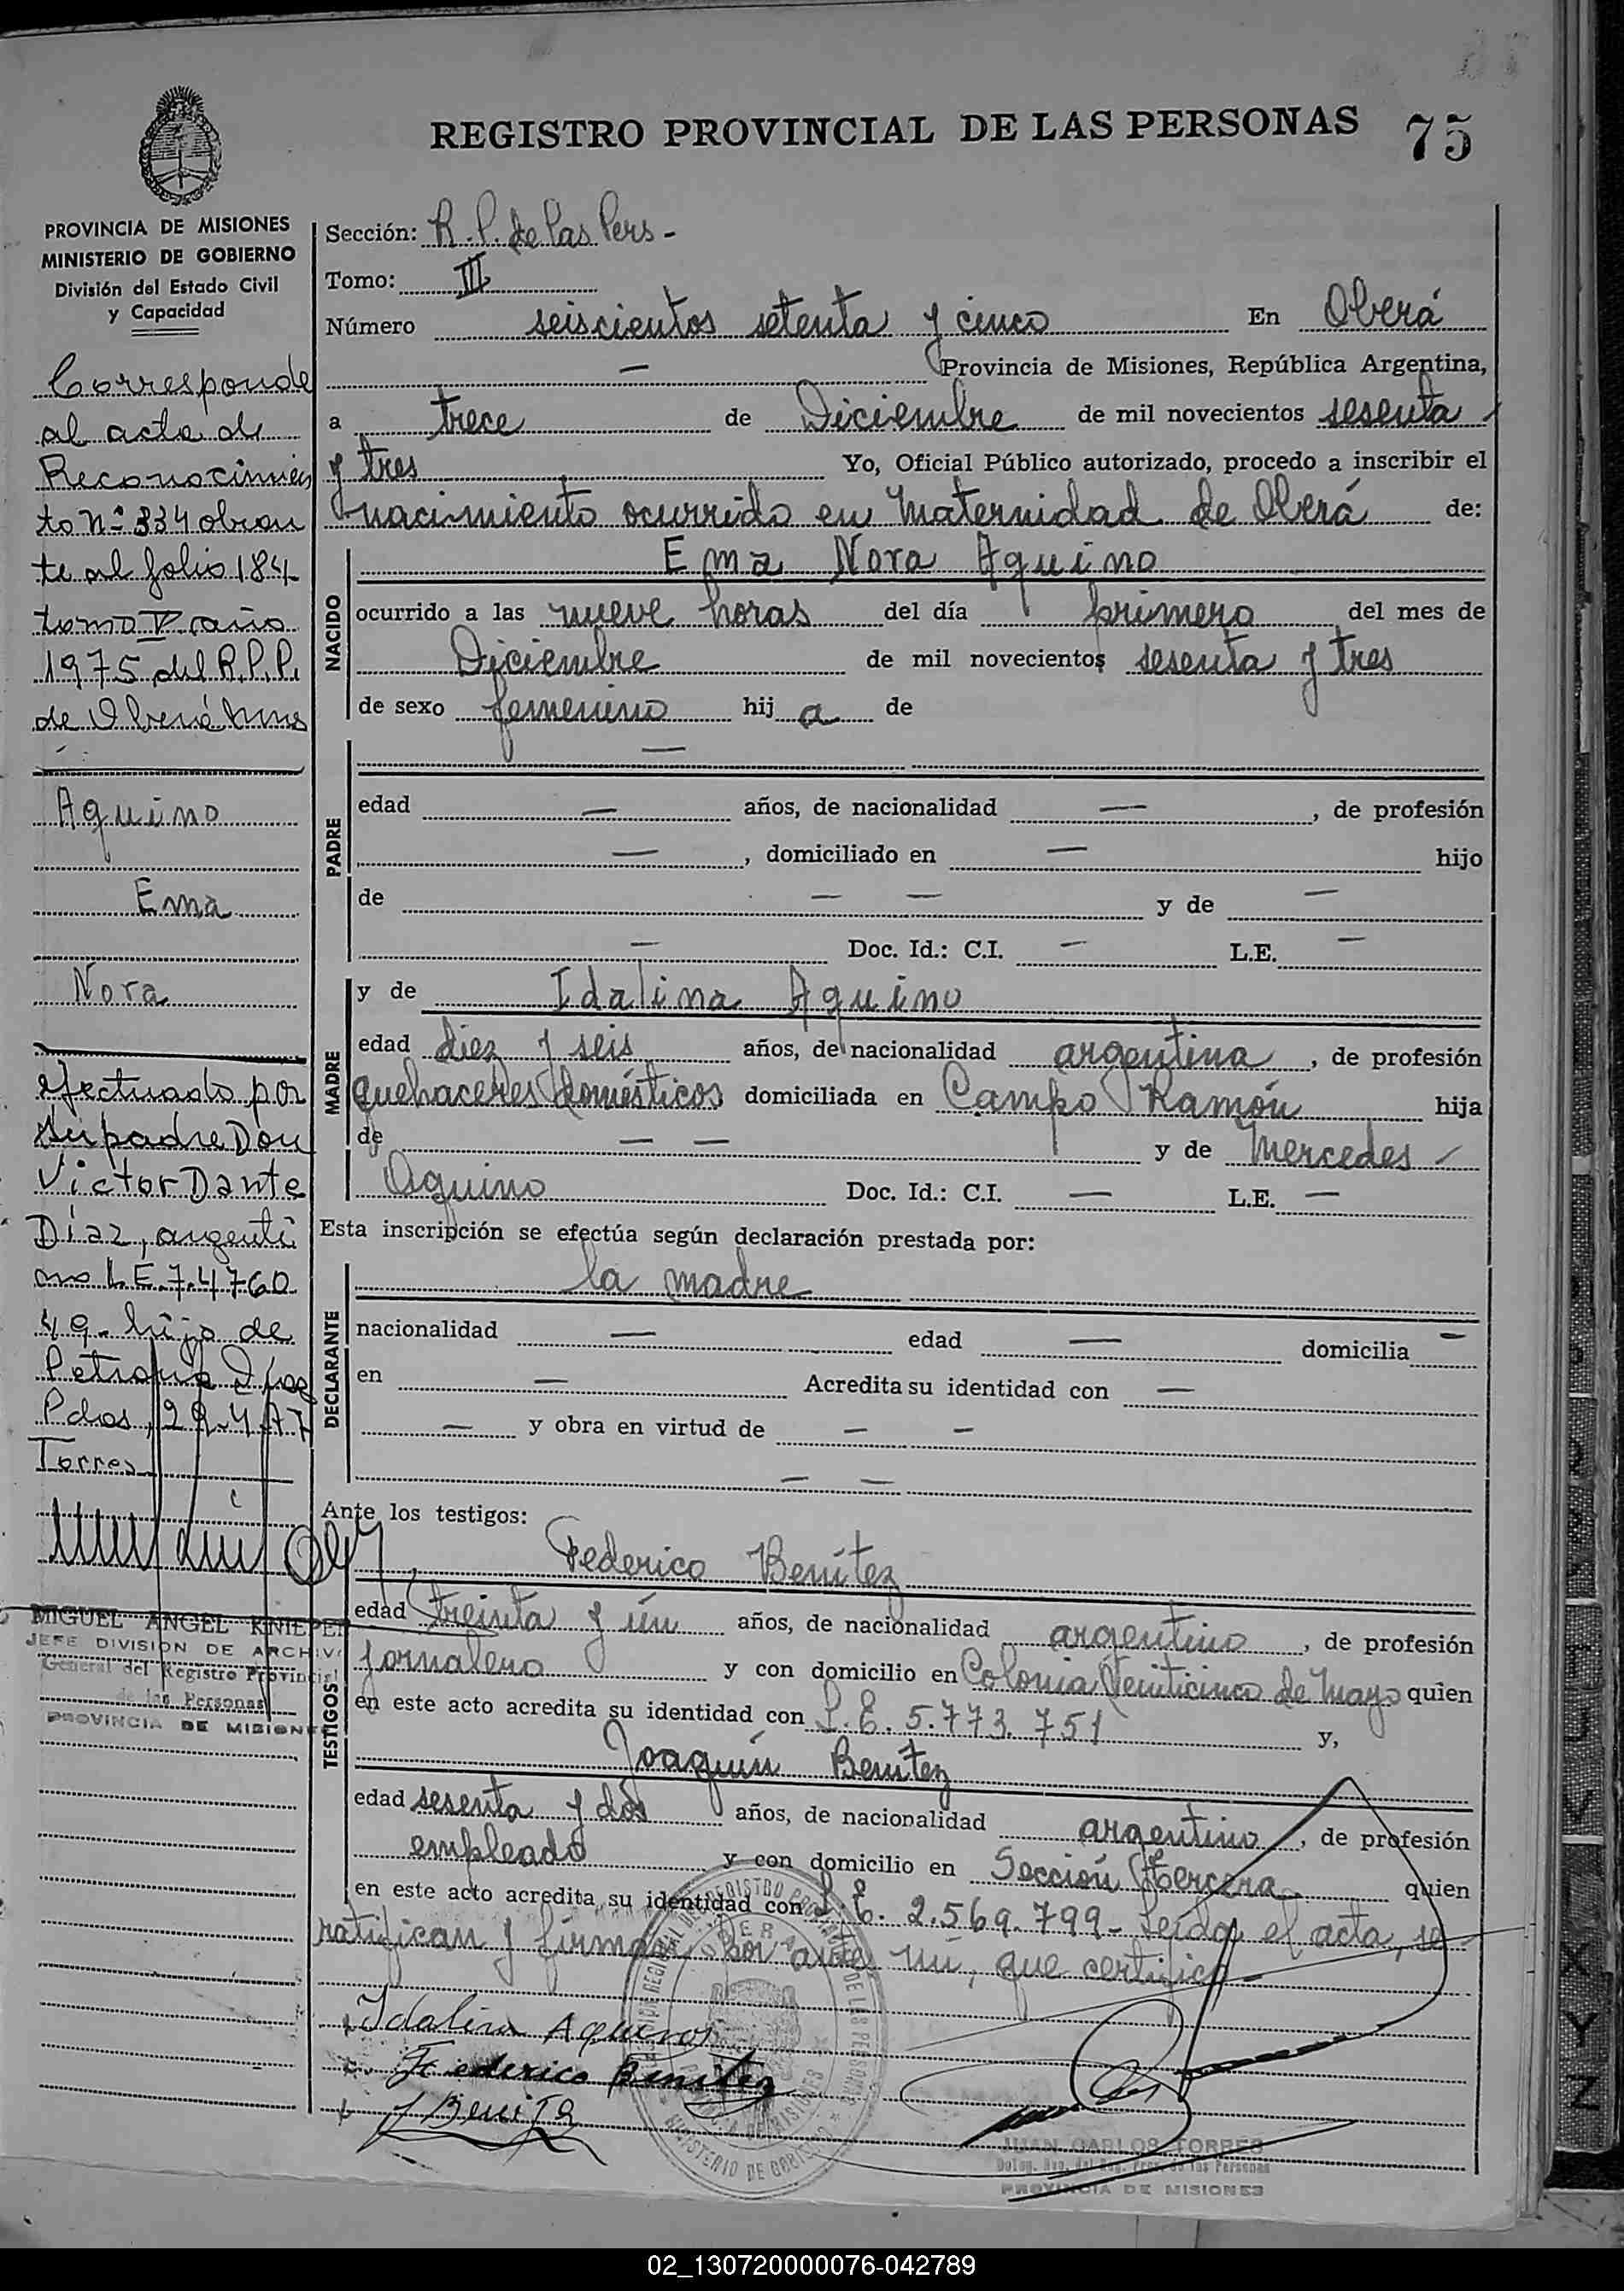 REGISTRO PROVINCIAL DE LAS PERSONAS 75
PROVINCIA DE MISIONES
MINISTERIO DE GOBIERNO
División del Estado Civil
y Capacidad
Corresponde
al acta de
Reconocimien
to Nº 334 obran
te al folio 184
tomo V año
1975 del R.P.P.
de Oberá Mnes
Aquino
Ema
Nora
efectuado por
su padre Don
Victor Dante
Díaz, argenti
no L.E. 7.4760
49. hijo de
Petrona Díaz
Pdas, 29.4.77
Torres
MIGUEL ANGEL KNIEPER
JEFE DIVISION DE ARCHIVO
General del Registro Provincial
de las Personas
PROVINCIA DE MISIONES
Sección: R. P. de las Pers -
Tomo: III
Número seiscientos setenta y cinco En Oberá
— Provincia de Misiones, República Argentina,
a trece de Diciembre de mil novecientos sesenta
y tres Yo, Oficial Público autorizado, procedo a inscribir el
nacimiento ocurrido en Maternidad de Oberá de:
NACIDO
Ema Nora Aquino
ocurrido a las nueve horas del día primero del mes de
Diciembre de mil novecientos sesenta y tres
de sexo femenino hij a de
—
PADRE
edad — años, de nacionalidad —, de profesión
—, domiciliado en — hijo
de — — y de —
— Doc. Id.: C.I. — L.E. —
MADRE
y de Idalina Aquino
edad diez y seis años, de nacionalidad argentina, de profesión
quehaceres domésticos domiciliada en Campo Ramón hija
de — — y de Mercedes —
Aquino Doc. Id.: C.I. — L.E. —
Esta inscripción se efectúa según declaración prestada por:
DECLARANTE
la madre
nacionalidad — edad — domicilia —
en — Acredita su identidad con —
— y obra en virtud de — —
— —
Ante los testigos:
TESTIGOS
Federico Benítez
edad treinta y un años, de nacionalidad argentino, de profesión
jornalero y con domicilio en Colonia Veinticinco de Mayo quien
en este acto acredita su identidad con L.E. 5.773.751 y,
Joaquín Benítez
edad sesenta y dos años, de nacionalidad argentino, de profesión
empleado y con domicilio en Sección tercera quien
en este acto acredita su identidad con L.E. 2.569.799- Leída el acta, se
ratifican y firman por ante mí, que certifico -
Idalina Aquino
Federico Benítez
J Benitez
JUAN CARLOS TORRES
Deleg. Reg. del Reg. Prov. de las Personas
PROVINCIA DE MISIONES
OBERA
MINISTERIO DE GOBIERNO
X
Y
Z
02_130720000076-042789